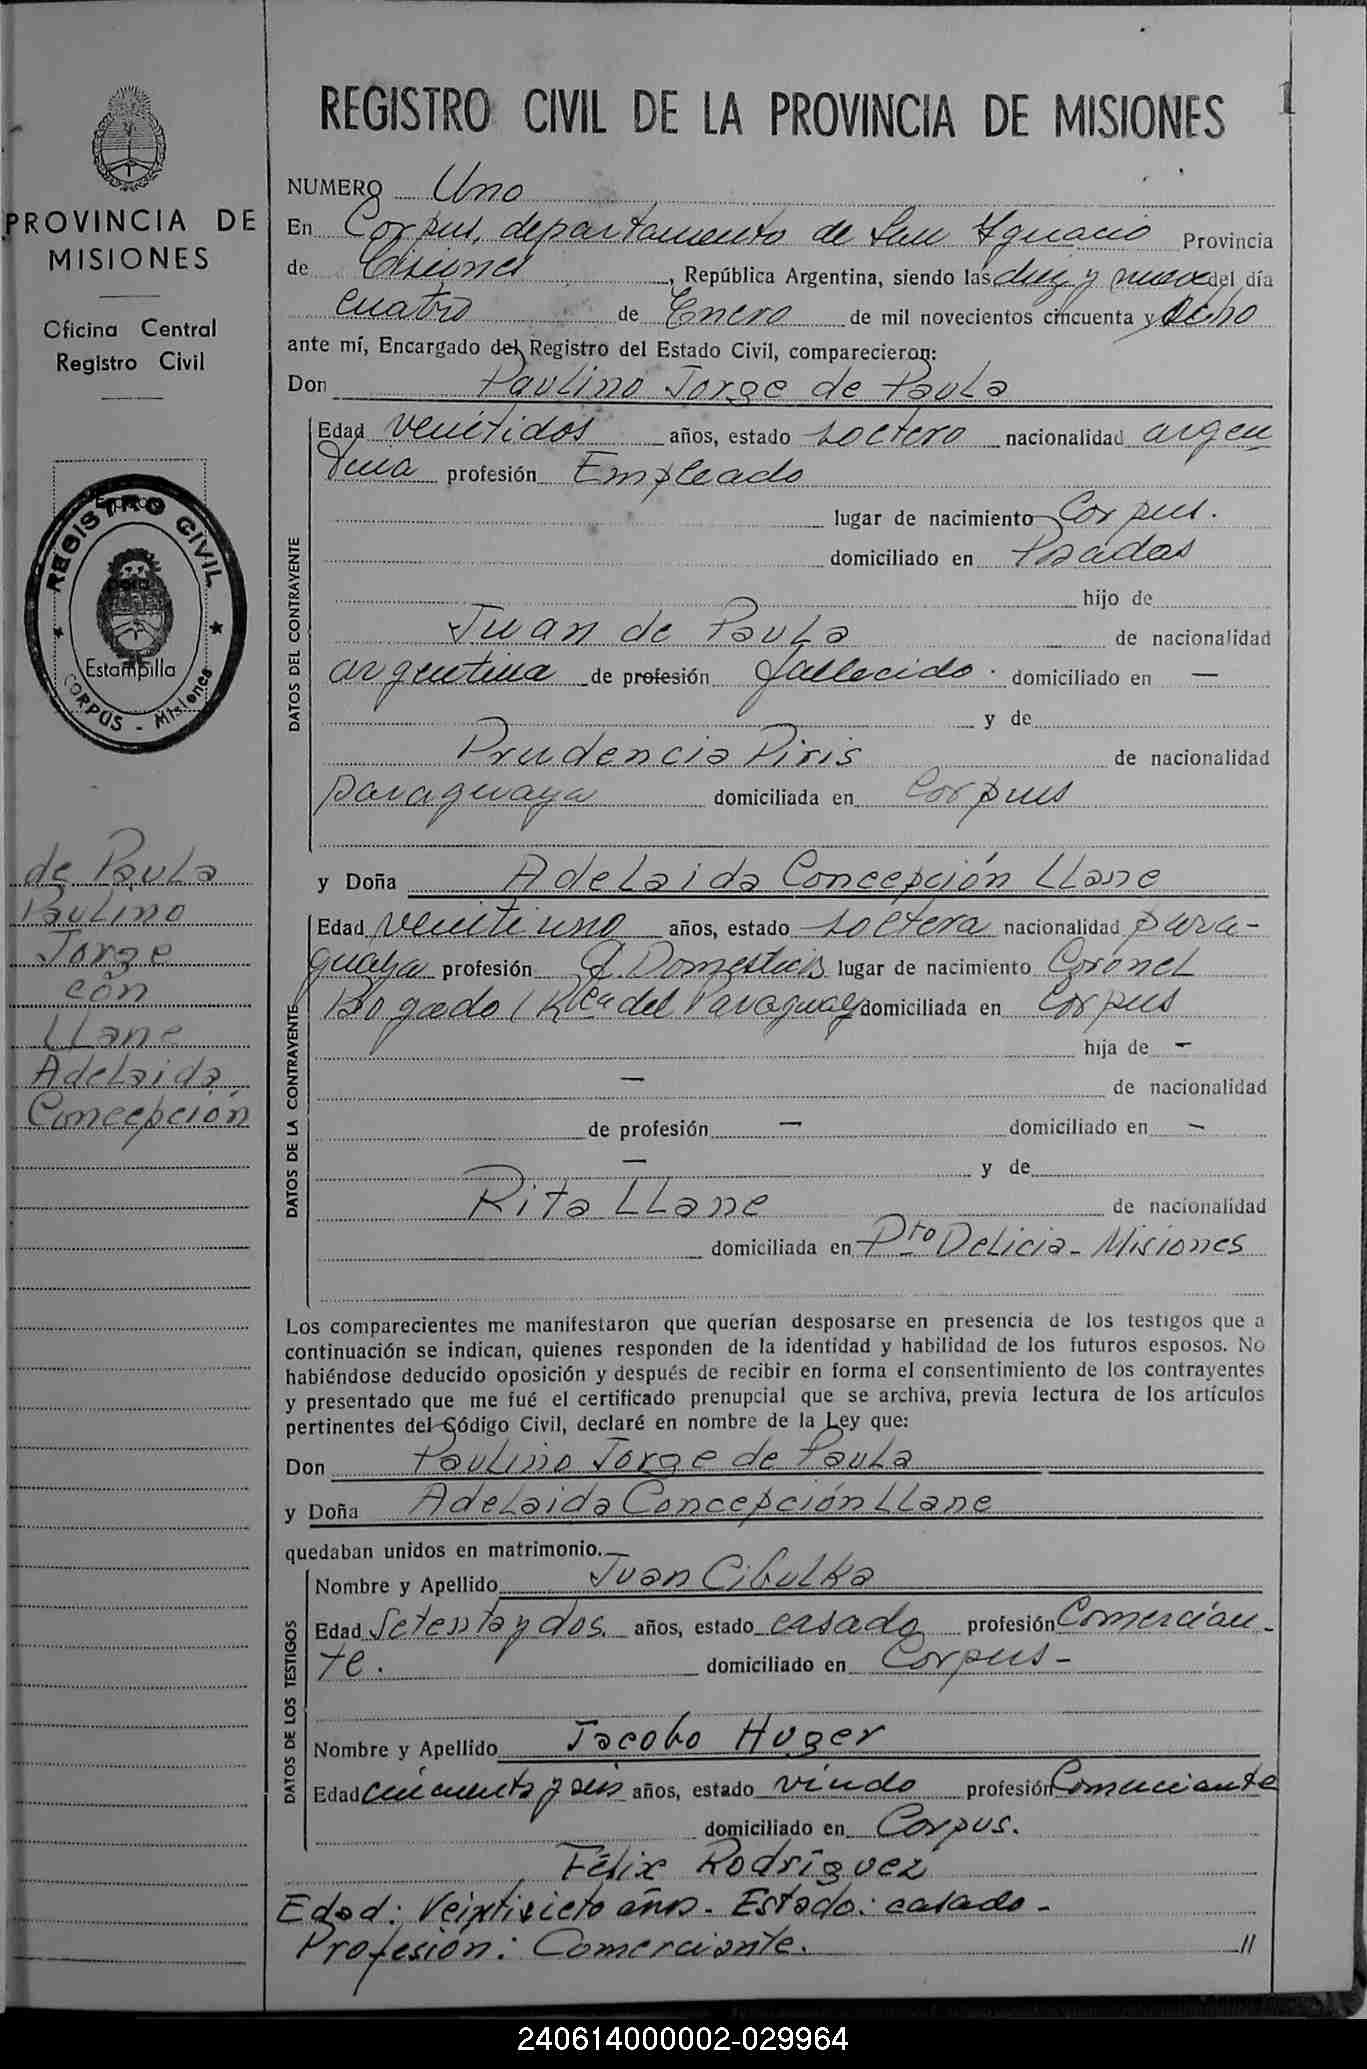 REGISTRO CIVIL DE LA PROVINCIA DE MISIONES
1
PROVINCIA DE
MISIONES
Oficina Central
Registro Civil
REGISTRO CIVIL
Estampilla
CORPUS - Misiones
de Paula
Paulino
Jorge
con
Llane
Adelaida
Concepción
NUMERO Uno
En Corpus, departamento de San Ygnacio Provincia
de Misiones, República Argentina, siendo las diez y nueve del día
cuatro de Enero de mil novecientos cincuenta y Ocho
ante mí, Encargado del Registro del Estado Civil, comparecieron:
Don Paulino Jorge de Paula
DATOS DEL CONTRAYENTE
Edad veintidos años, estado soltero nacionalidad argen
tina profesión Empleado
lugar de nacimiento Corpus.
domiciliado en Posadas
hijo de
Juan de Paula de nacionalidad
argentina de profesión fallecido. domiciliado en —
y de
Prudencia Piris de nacionalidad
paraguaya domiciliada en Corpus
y Doña Adelaida Concepción Llane
DATOS DE LA CONTRAYENTE
Edad veintiuno años, estado soltera nacionalidad para-
guaya profesión Q. Domesticos lugar de nacimiento Coronel
Bogado / Rca del Paraguay domiciliada en Corpus
hija de —
— de nacionalidad
de profesión — domiciliado en —
— y de
Rita Llane de nacionalidad
domiciliada en Pto Delicia - Misiones
Los comparecientes me manifestaron que querían desposarse en presencia de los testigos que a
continuación se indican, quienes responden de la identidad y habilidad de los futuros esposos. No
habiéndose deducido oposición y después de recibir en forma el consentimiento de los contrayentes
y presentado que me fué el certificado prenupcial que se archiva, previa lectura de los artículos
pertinentes del Código Civil, declaré en nombre de la Ley que:
Don Paulino Jorge de Paula
y Doña Adelaida Concepción Llane
quedaban unidos en matrimonio.—
DATOS DE LOS TESTIGOS
Nombre y Apellido Juan Cibulka
Edad Setenta y dos años, estado casado profesión Comercian-
te. domiciliado en Corpus -
Nombre y Apellido Jacobo Huger
Edad cincuenta y seis años, estado viudo profesión Comerciante
domiciliado en Corpus.
Félix Rodríguez
Edad: Veintisieto años. Estado: casado -
Profesión: Comerciante. //
240614000002-029964